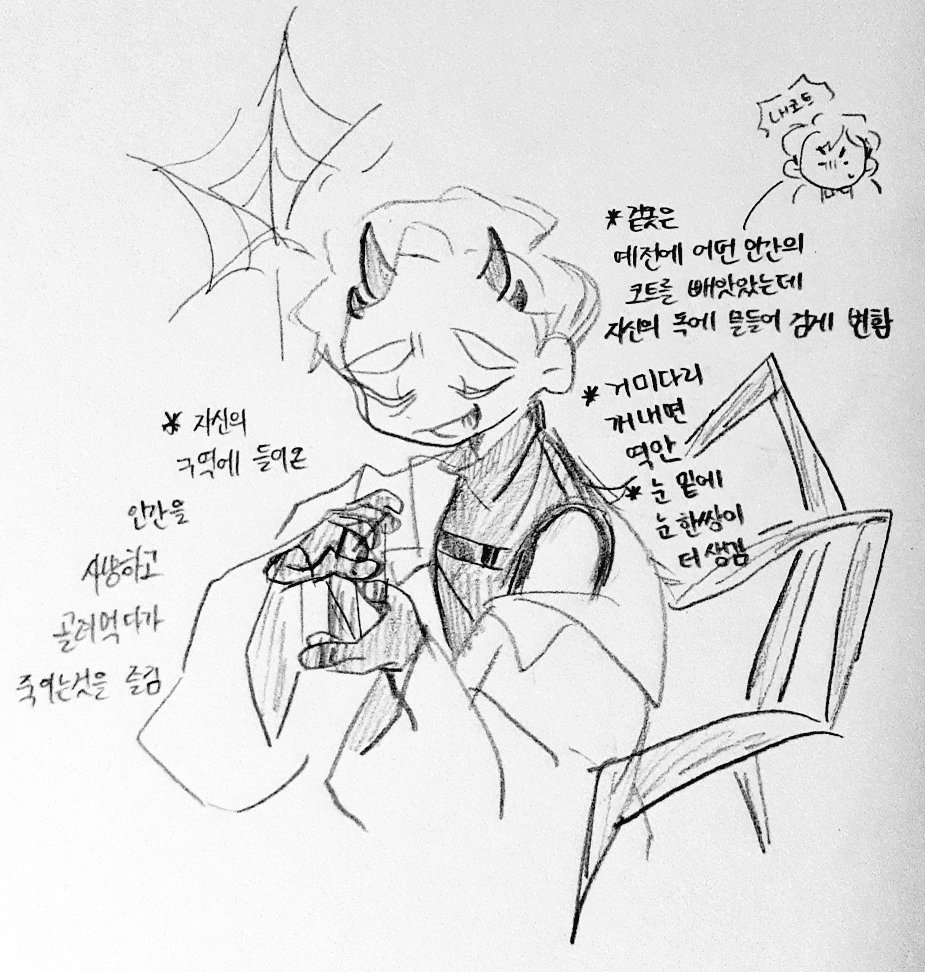 내코트
* 겉옷은
예전에 어떤 인간의
코트를 빼앗았는데
자신의 독에 물들어 검게 변함
* 거미다리
꺼내면
역안
* 눈 밑에
눈한쌍이
더생김
* 자신의
구역에 들어온
인간을
사냥하고
골려먹다가
죽이는것을 즐김